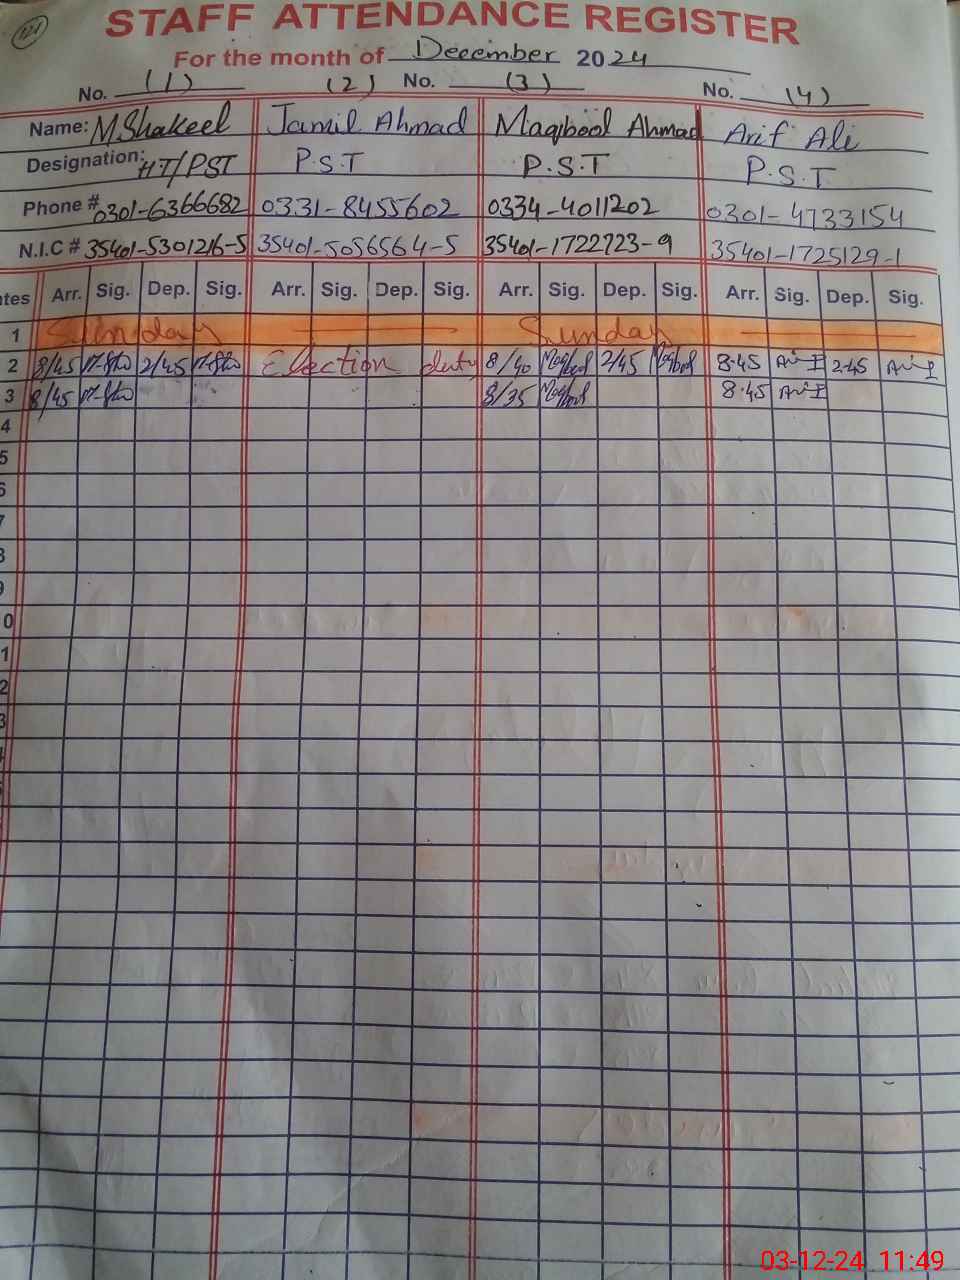 121
STAFF ATTENDANCE REGISTER
For the month of December 2024
No. (1) (2) No. (3) No. (4)
Name: M Shakeel Jamil Ahmad Maqbool Ahmad Arif Ali
Designation: HT/PST P.S.T P.S.T P.S.T
Phone # 0301-6366682 0331-8455602 0334-4011202 0301-4733154
N.I.C # 35401-5301216-5 35401-5056564-5 35401-1722723-9 35401-1725129-1
tes Arr. Sig. Dep. Sig. Arr. Sig. Dep. Sig. Arr. Sig. Dep. Sig. Arr. Sig. Dep. Sig.
1 Sunday Sunday
2 8/45 2/45 Election duty 8/40 Maqbool 2/45 Maqbool 8.45 2.45
3 8/45 8/35 Maqbool 8.45
4
5
6
7
8
9
0
1
2
3
4
03-12-24 11:49